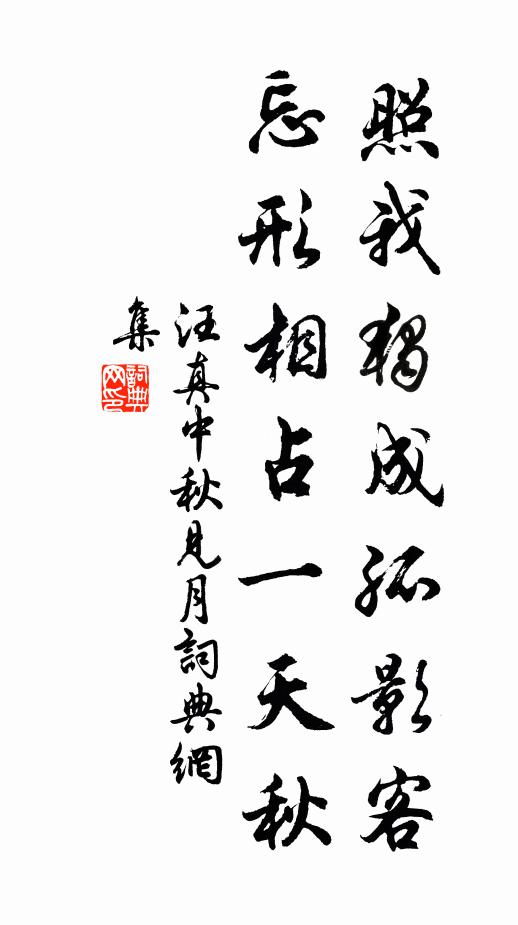 照我獨成孤影客
忘形相占一天秋
汪真中秋見月詞典網
集
詞典网印